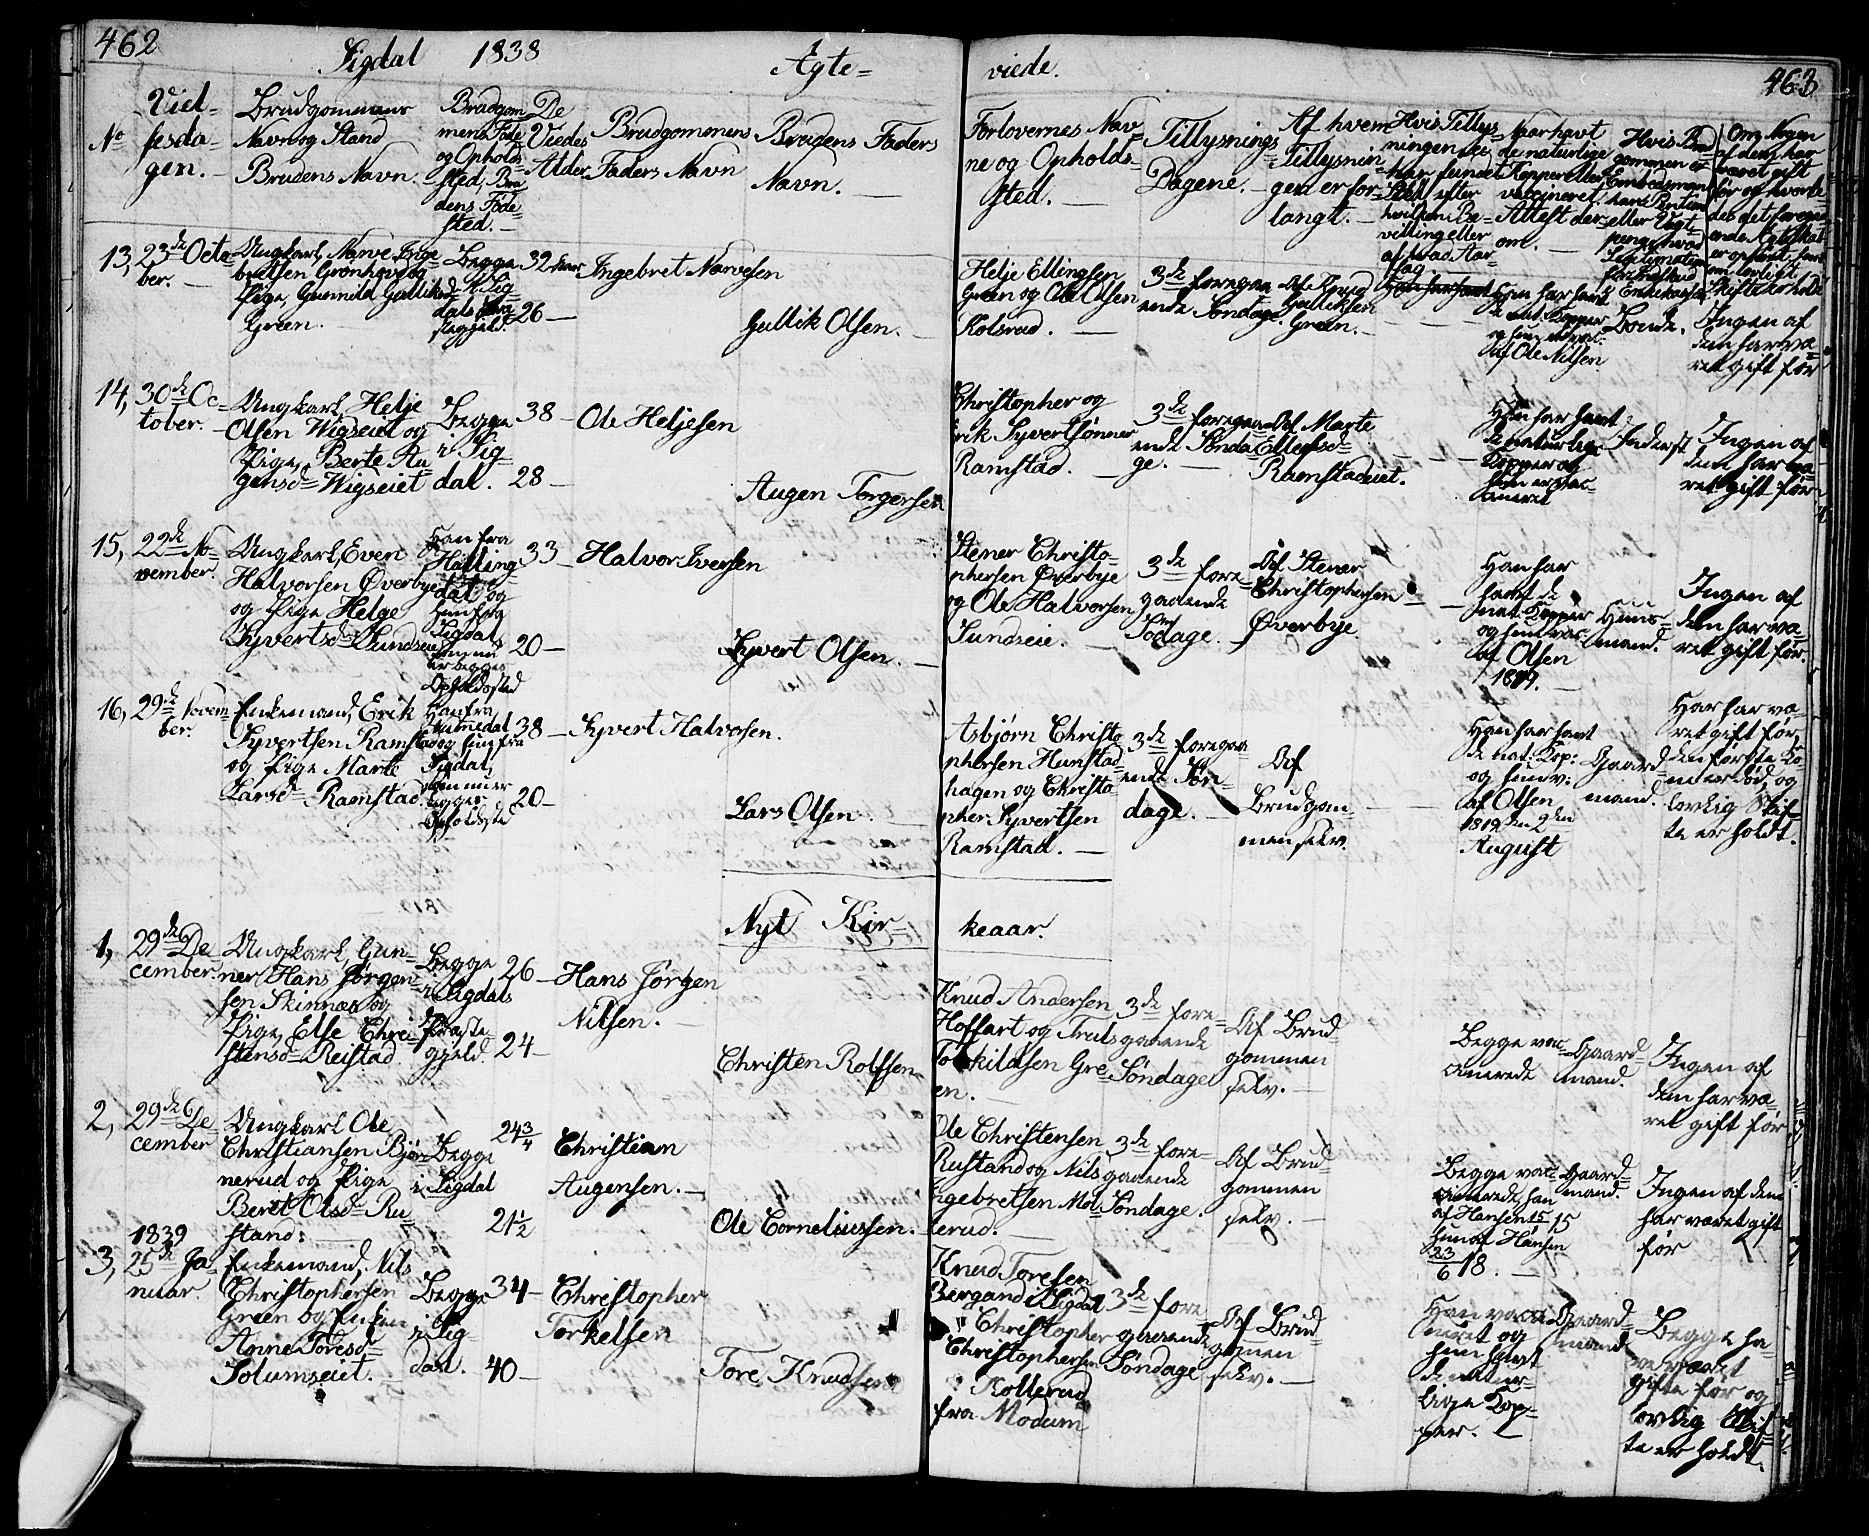 462
Sigdal 1838 Ægte=
viede.
463
No
Viel-
sesda-
gen.
Brudgommens
Navn og Stand
Brudens Navn.
Brudgom
mens Føde
og Opholds-
sted, Bru
dens Føde-
sted.
De
Viedes
Alder
Brudgommens
Faders Navn
Brudens Faders
Navn.
Forlovernes Nav-
ne og Opholds-
sted.
Tillysnings
Dagene.
Af hvem
Tillysnin
gen er for-
langt.
Hvis Tillys
ningen ikke
har fundet
Sted, efter
hvilken Be-
villing eller
Naar havt
de naturlige
Kopper eller
vaccineret.
Attest der-
om.
Hvis Bru
gommen er
Embedsmand
hans Pention
eller Vegt-
penge
Om Nogen
af dem har
været gift
før og hvorle-
des det foregaa-
ende Egteskab
er ophævet, samt
om lovligt
Skifte er holdt
13, 23de Octo-
ber.
Ungkarl, Narve Inge-
bretsen Grønhovd og
Pige, Gunnild Gulliksd
Green.
Begge
i Sig-
dals Præ
stegjeld
32 Aar
26
Ingebret Narvesen
Gullik Olsen.
Helje Ellingsen
Green og Ole Olsen
Kolsrud.
3de foregaa-
ende Søndage.
Af Knud
Gulliksen
Green.
Han har havt
de nat. Kopper
og hun er vac.
af Ole Nilsen
Bonde.
Ingen af
dem har va-
ret gift før
14, 30de Oc-
tober.
Ungkarl, Helje
Olsen Wigseiet og
Pige, Berte Au-
gensd Wigseiet
Begge
i Sig-
dal.
38
28
Ole Heljesen
Augen Torgersen
Christopher og
Erik Syvertsønner
Ramstad.
3de foregaa-
ende Sønda-
ge.
Af Marte
Ellefsd
Ramstadeiet.
Han har havt
de naturlige
Kopper og
hun er vac-
cineret
Inderst
Ingen af
dem har va-
ret gift før
15, 22de No-
vember.
Ungkarl, Even
Halvorsen Øverbye
og Pige Helge
Syvertsd Sundseie
Han fra
Halling-
dal og
Hun fra
Sigdal
som nu
er begges
Opholdssted
33
20
Halvor Iversen
Syvert Olsen.
Stener Christo-
phersen Øverbye
og Ole Halvorsen
Sundseie.
3de fore-
gaaende
Søndage.
Af Stener
Christophersen
Øverbye.
Han har
havt de
nat. Kopper
og hun vac.
af Olsen
1819.
Huus-
mand.
Ingen af
dem har va-
ret gift før.
16, 29de Novem-
ber.
Enkemand, Erik
Syvertsen Ramstad
og Pige Marte
Larsd Ramstad.
Han fra
Numedal
og hun fra
Sigdal,
som nu er
begges
Opholdssted
38
20
Syvert Halvorsen.
Lars Olsen.
Asbjørn Christo-
phersen Hunstad-
hagen og Christo-
pher Syvertsen
Ramstad.
3de foregaa-
ende Søn-
dage.
Af
Brudgom-
men selv.
Han har havt
de nat: Kop:
og hun v:
af Olsen
1819 den 2den
August
Gaard-
mand.
Har har va-
ret gift før,
den første Ko-
ne er død, og
lovlig Skif-
te er holdt.
Nyt Kir-
keaar.
1, 29de De-
cember.
Ungkarl, Gun-
ner Hans Jørgen-
sen Skinnes og
Pige, Else Chri-
stensd Reistad
Begge
i Sigdals
Præste-
gjeld.
26
24
Hans Jørgen
Nilsen.
Christen Rolfsen
Knud Andersen
Hoffart og Truls
Torkildsen Gre-
en.
3de fore-
gaaende
Søndage
Af Brud-
gommen
selv.
Begge vac-
cinerede
Gaard-
mand.
Ingen af
dem har va-
ret gift før
2, 29de De-
cember
Ungkarl Ole
Christiansen Bjør-
nerud og Pige
Beret Olsd Ru-
stand:
Begge
i Sigdal
24 3/4
21 1/2
Christian
Augensen.
Ole Corneliussen.
Ole Christensen
Rustand og Nils
Ingebretsen Mol-
lerud.
3de fore-
gaaende
Søndage.
Af Brud-
gommen
selv.
Begge vac-
cinerede, han
af Hansen 15/ 15
Hun af Hansen
23/6 18.
Gaard-
mand.
Ingen af dem
har været gift
før
1839
3, 25de Ja-
nuar.
Enkemand, Nils
Christophersen
Green og Enken
Anne Toresd
Solumseiet.
Begge
i Sig-
dal.
34
40
Christopher
Torkelsen
Tore Knudsen
Knud Toresen
Bergand i Sigdal
" Christopher
Christophersen
Kollerud
fra Modum
3de fore-
gaaende
Søndage
Af Brud-
gommen
selv.
Han vacci-
neret og
hun havt
de natur-
lige Kop-
per.
Gaard-
mand
Begge ha-
ve været
gifte før og
lovlig Skif-
te er holdt.